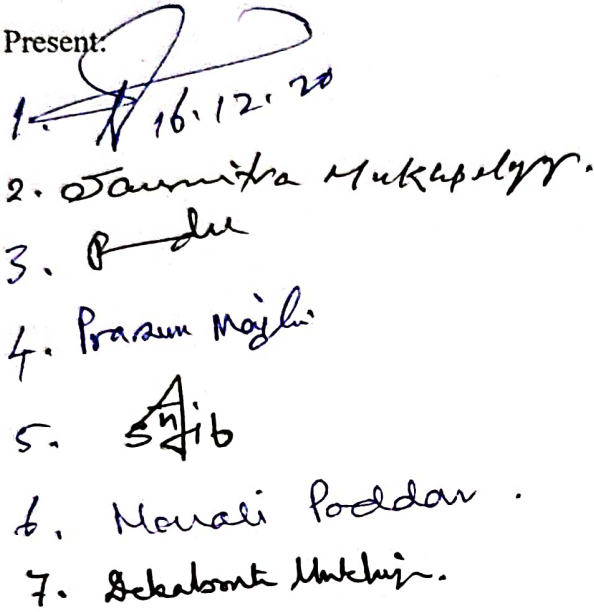 Present:
1. 16.12.20
2. Saumitra Mukhopadhyay.
3.
4. Prasun Majhi
5. Sanjib
6. Manali Poddar.
7. Debabrata Mukherjee.